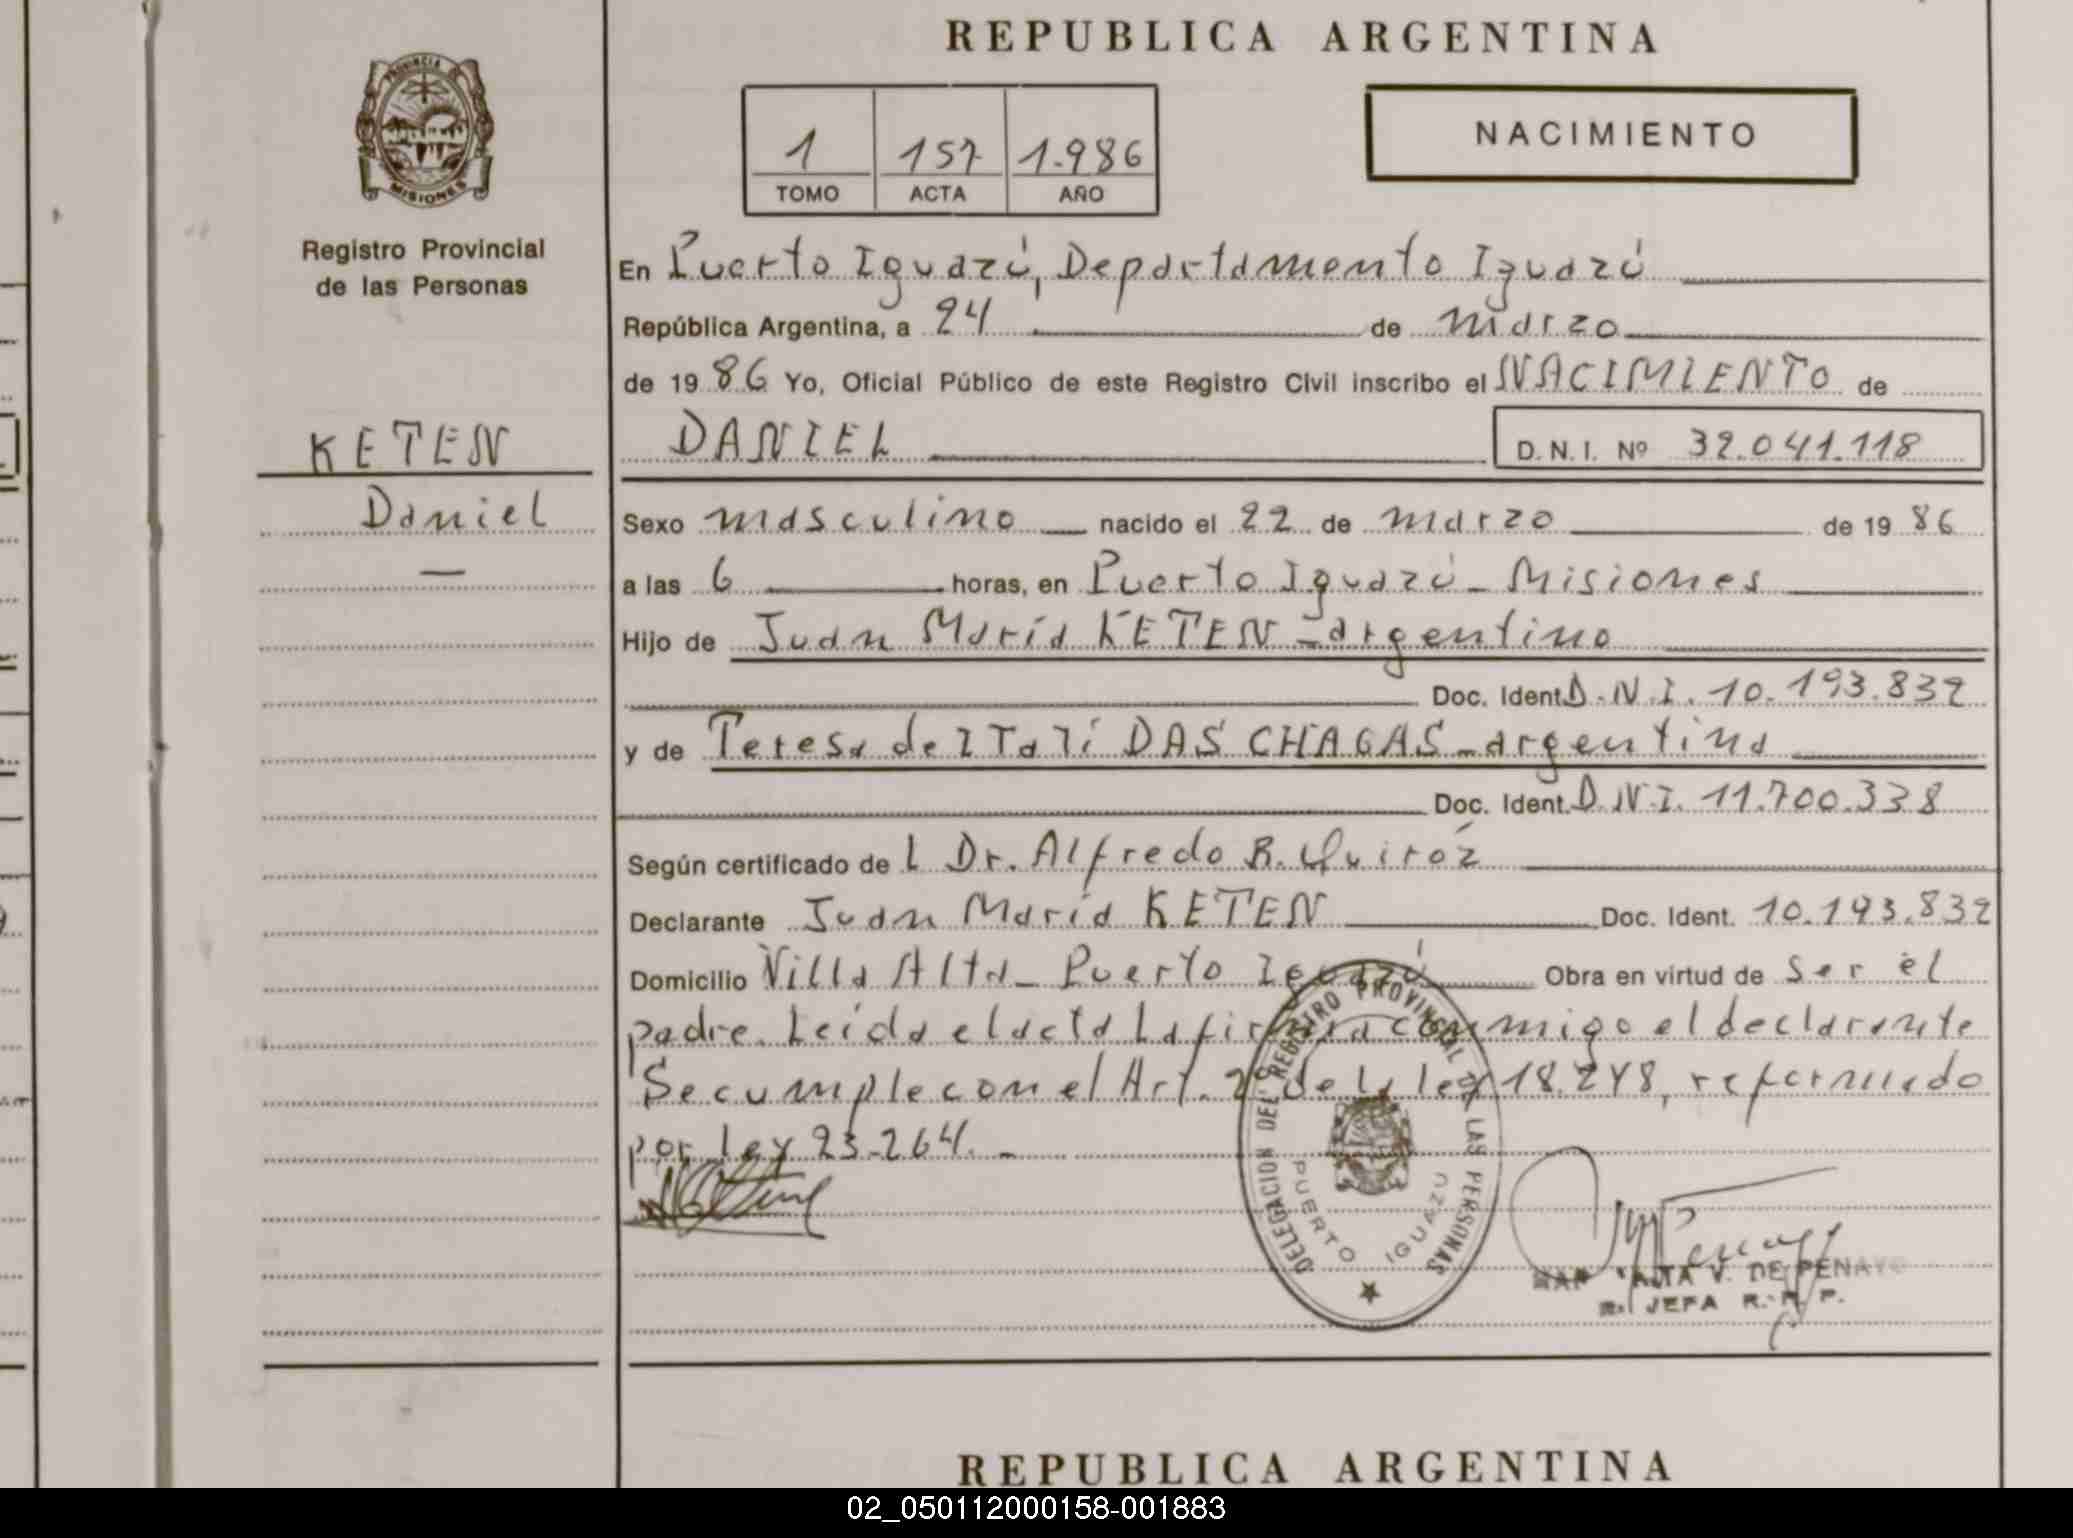 REPUBLICA ARGENTINA
PROVINCIA DE
MISIONES
Registro Provincial
de las Personas
1 157 1.986
TOMO ACTA AÑO
NACIMIENTO
En Puerto Iguazú, Departamento Iguazú
República Argentina, a 24 de marzo
de 19 86 Yo, Oficial Público de este Registro Civil inscribo el NACIMIENTO de
DANIEL D.N.I. Nº 32.041.118
KETEN
Daniel
Sexo masculino nacido el 22 de marzo de 19 86
a las 6 horas, en Puerto Iguazú - Misiones
Hijo de Juan María KETEN - argentino
Doc. Ident. D.N.I. 10.193.832
y de Teresa de Itatí DAS CHAGAS - argentina
Doc. Ident. D.N.I. 11.700.338
Según certificado de l Dr. Alfredo R. Quiróz
Declarante Juan María KETEN Doc. Ident. 10.193.832
Domicilio Villa Alta - Puerto Iguazú Obra en virtud de ser él
padre. Leída el acta la firmara conmigo el declarante
Se cumple con el Art. 2 de la ley 18.248, reformado
por ley 23.264. -
DELEGACION DEL REGISTRO PROVINCIAL DE LAS PERSONAS
PUERTO IGUAZU
V. DE PENAYO
JEFA R. P. P.
REPUBLICA ARGENTINA
02_050112000158-001883